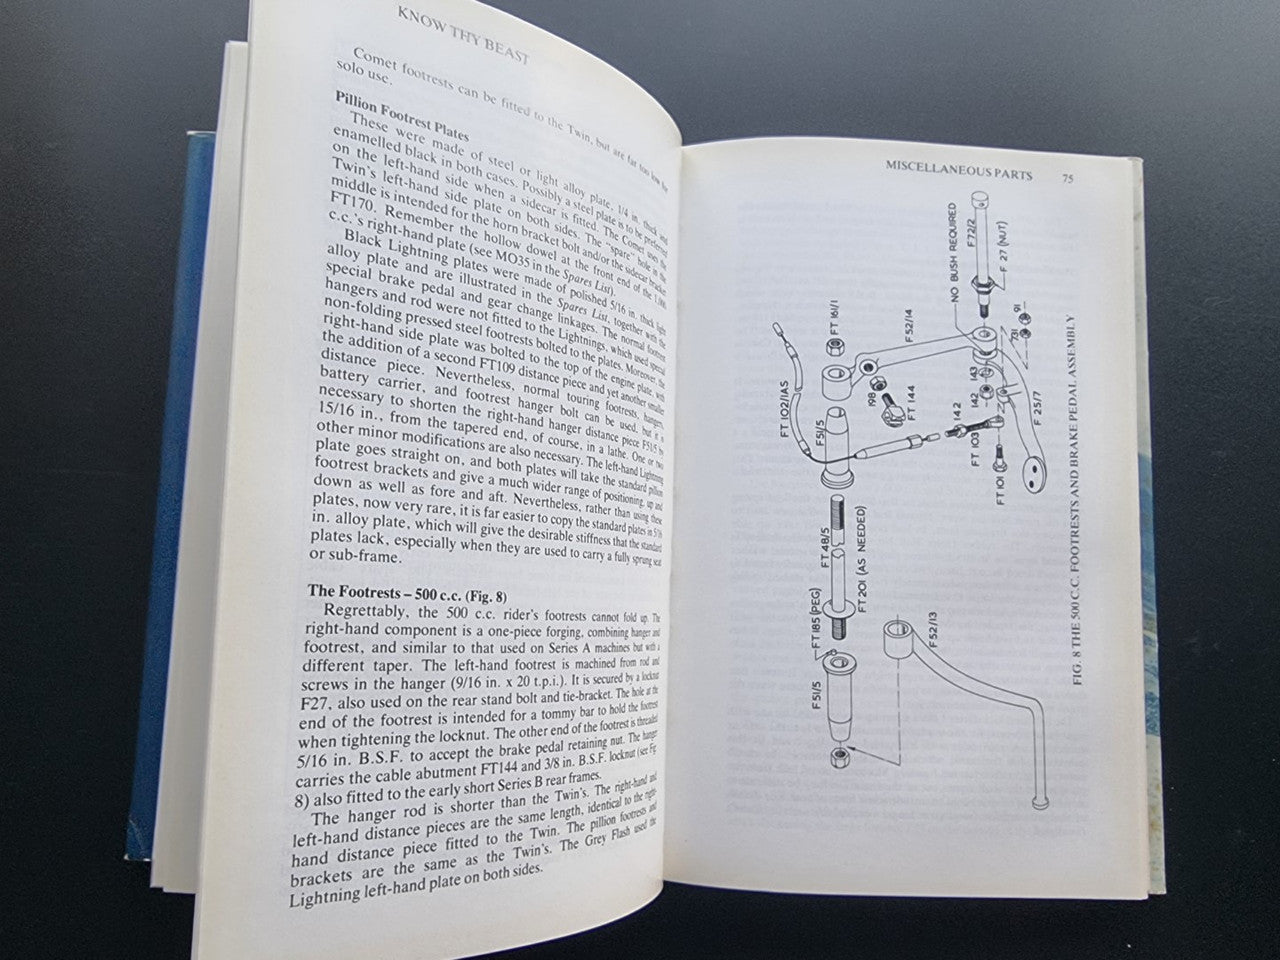 KNOW THY BEAST
Comet footrests can be fitted to the Twin, but are far too low for
solo use.
Pillion Footrest Plates
These were made of steel or light alloy plate, 1/4 in. thick and
enamelled black in both cases. Possibly a steel plate is to be preferred
on the left-hand side when a sidecar is fitted. The Comet uses the
Twin's left-hand side plate on both sides. The "spare" hole in the
middle is intended for the horn bracket bolt and/or the sidecar bracket
FT170. Remember the hollow dowel at the front end of the 1,000
c.c.'s right-hand plate (see MO35 in the Spares List).
Black Lightning plates were made of polished 5/16 in. thick light
alloy plate and are illustrated in the Spares List, together with the
special brake pedal and gear change linkages. The normal footrest
hangers and rod were not fitted to the Lightnings, which used special
non-folding pressed steel footrests bolted to the plates. Moreover, the
right-hand side plate was bolted to the top of the engine plate, with
the addition of a second FT109 distance piece and yet another smaller
distance piece. Nevertheless, normal touring footrests, hangers,
battery carrier, and footrest hanger bolt can be used, but it is
necessary to shorten the right-hand hanger distance piece F51/5 by
15/16 in., from the tapered end, of course, in a lathe. One or two
other minor modifications are also necessary. The left-hand Lightning
plate goes straight on, and both plates will take the standard pillion
footrest brackets and give a much wider range of positioning, up and
down as well as fore and aft. Nevertheless, rather than using these
plates, now very rare, it is far easier to copy the standard plates in 5/16
in. alloy plate, which will give the desirable stiffness that the standard
plates lack, especially when they are used to carry a fully sprung seat
or sub-frame.
The Footrests – 500 c.c. (Fig. 8)
Regrettably, the 500 c.c. rider's footrests cannot fold up. The
right-hand component is a one-piece forging, combining hanger and
footrest, and similar to that used on Series A machines but with a
different taper. The left-hand footrest is machined from rod and
screws in the hanger (9/16 in. x 20 t.p.i.). It is secured by a locknut
F27, also used on the rear stand bolt and tie-bracket. The hole at the
end of the footrest is intended for a tommy bar to hold the footrest
when tightening the locknut. The other end of the footrest is threaded
5/16 in. B.S.F. to accept the brake pedal retaining nut. The hanger
carries the cable abutment FT144 and 3/8 in. B.S.F. locknut (see Fig.
8) also fitted to the early short Series B rear frames.
The hanger rod is shorter than the Twin's. The right-hand and
left-hand distance pieces are the same length, identical to the right-
hand distance piece fitted to the Twin. The pillion footrests and
brackets are the same as the Twin's. The Grey Flash used the
Lightning left-hand plate on both sides.
MISCELLANEOUS PARTS 75
NO BUSH REQUIRED
F72/2
F 27 (NUT)
FT 161/1
F52/14
91
731
FT 102/1AS
198
FT 144
143
142
142
F51/5
FT 103
F 25/7
FT 101
FT 48/5
FT 201 (AS NEEDED)
FT 185 (PEG)
F52/13
F51/5
FIG. 8 THE 500 C.C. FOOTRESTS AND BRAKE PEDAL ASSEMBLY